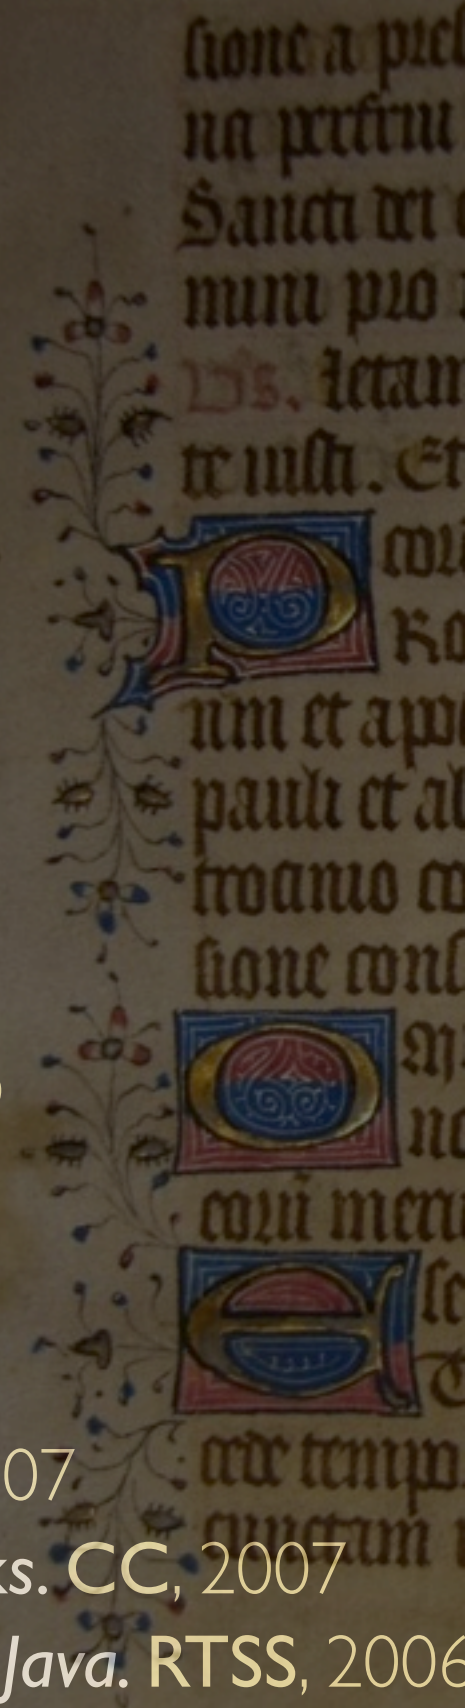 sione a pres
na perfrui
Sancti dei
mini pro
Vs. letam
te iusti. Et
P coru
Ro
um et apo
pauli et al
trocinio co
sione cons
O
no
corū meri
E se
cede temp
cunctam
07
ks. CC, 2007
Java. RTSS, 2006